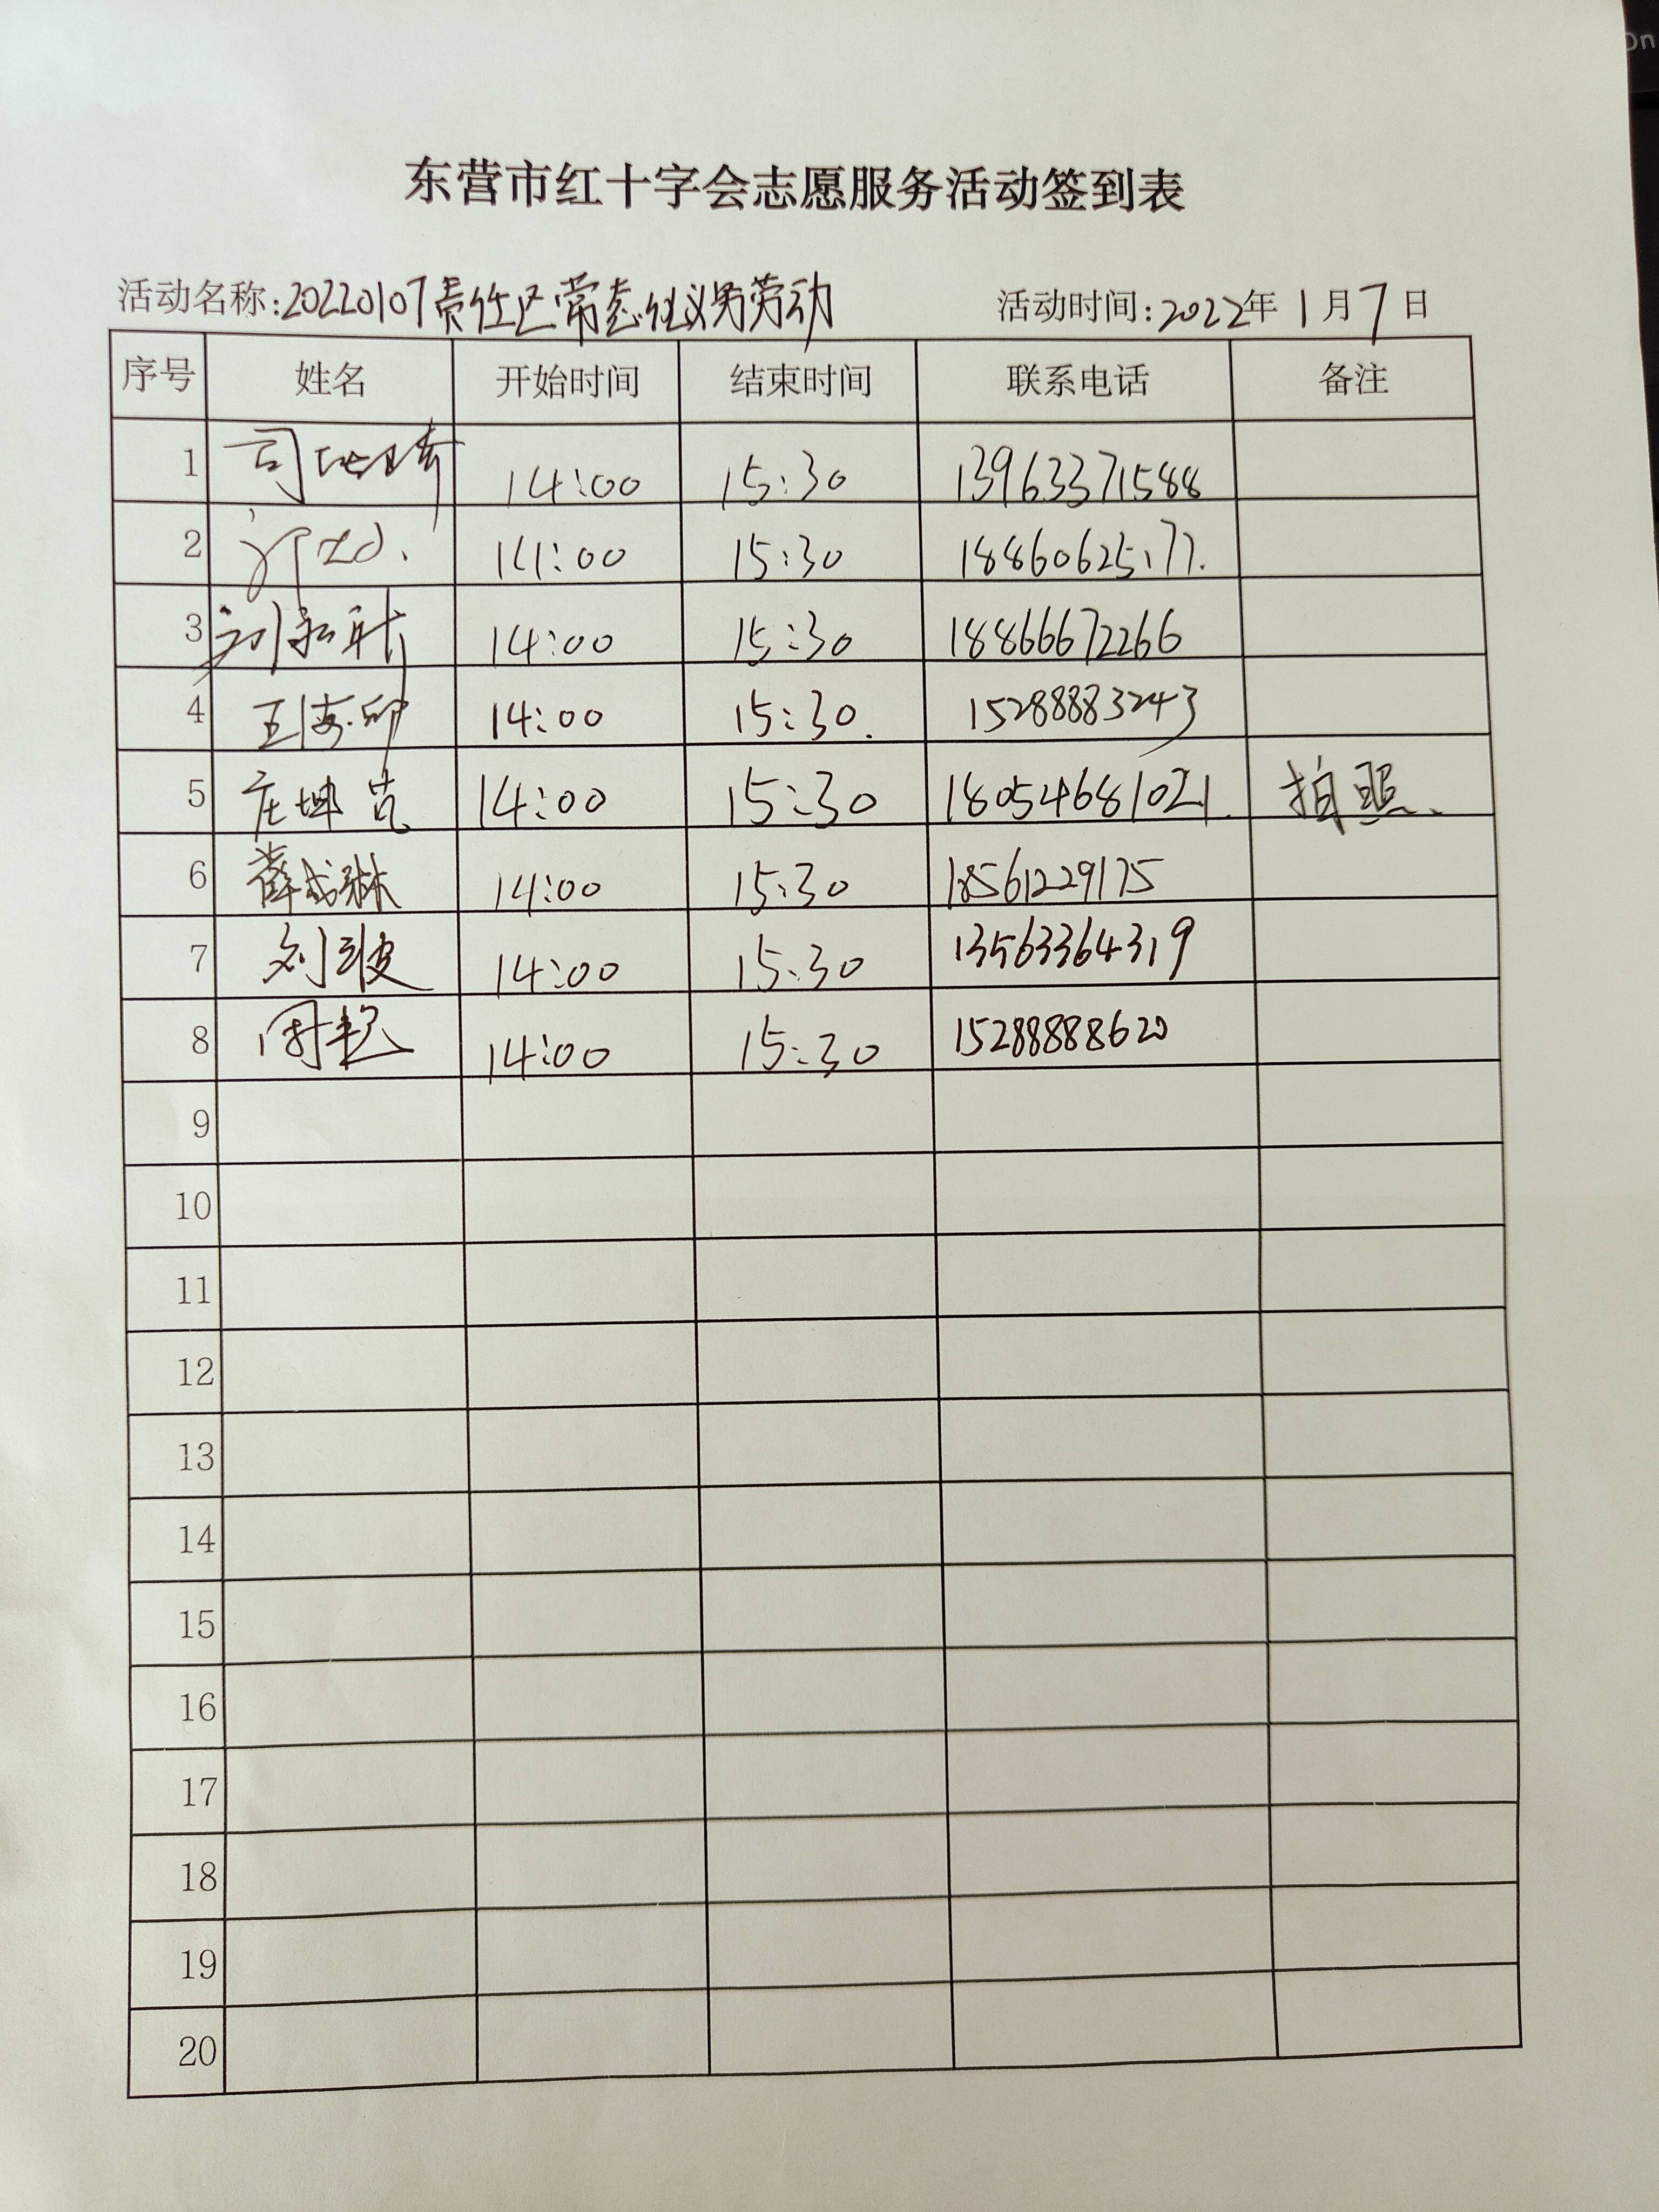 东营市红十字会志愿服务活动签到表
活动名称:20220107责任区常态化义务劳动 活动时间:2022年1月7日
序号 姓名 开始时间 结束时间 联系电话 备注
1 14:00 15:30 13963371588
2 14:00 15:30 18860625177.
3 14:00 15:30 18866672266
4 14:00 15:30. 15288883243
5 庄坤 14:00 15:30 18054681021. 拍照、
6 薛成琳 14:00 15:30 18561229175
7 刘玻 14:00 15:30 13563364319
8 周艳 14:00 15:30 15288888620
9
10
11
12
13
14
15
16
17
18
19
20
On